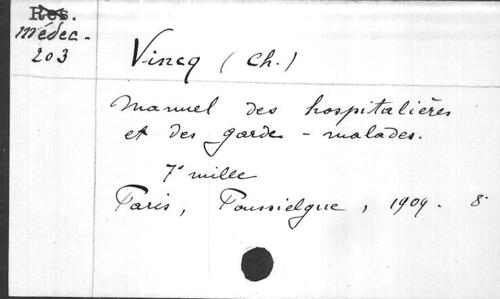 Res.
médec -
203
Vincq (Ch.)
Manuel des hospitalières
et des garde - malades.
7e mille
Paris, Poussielgue, 1909. 8°